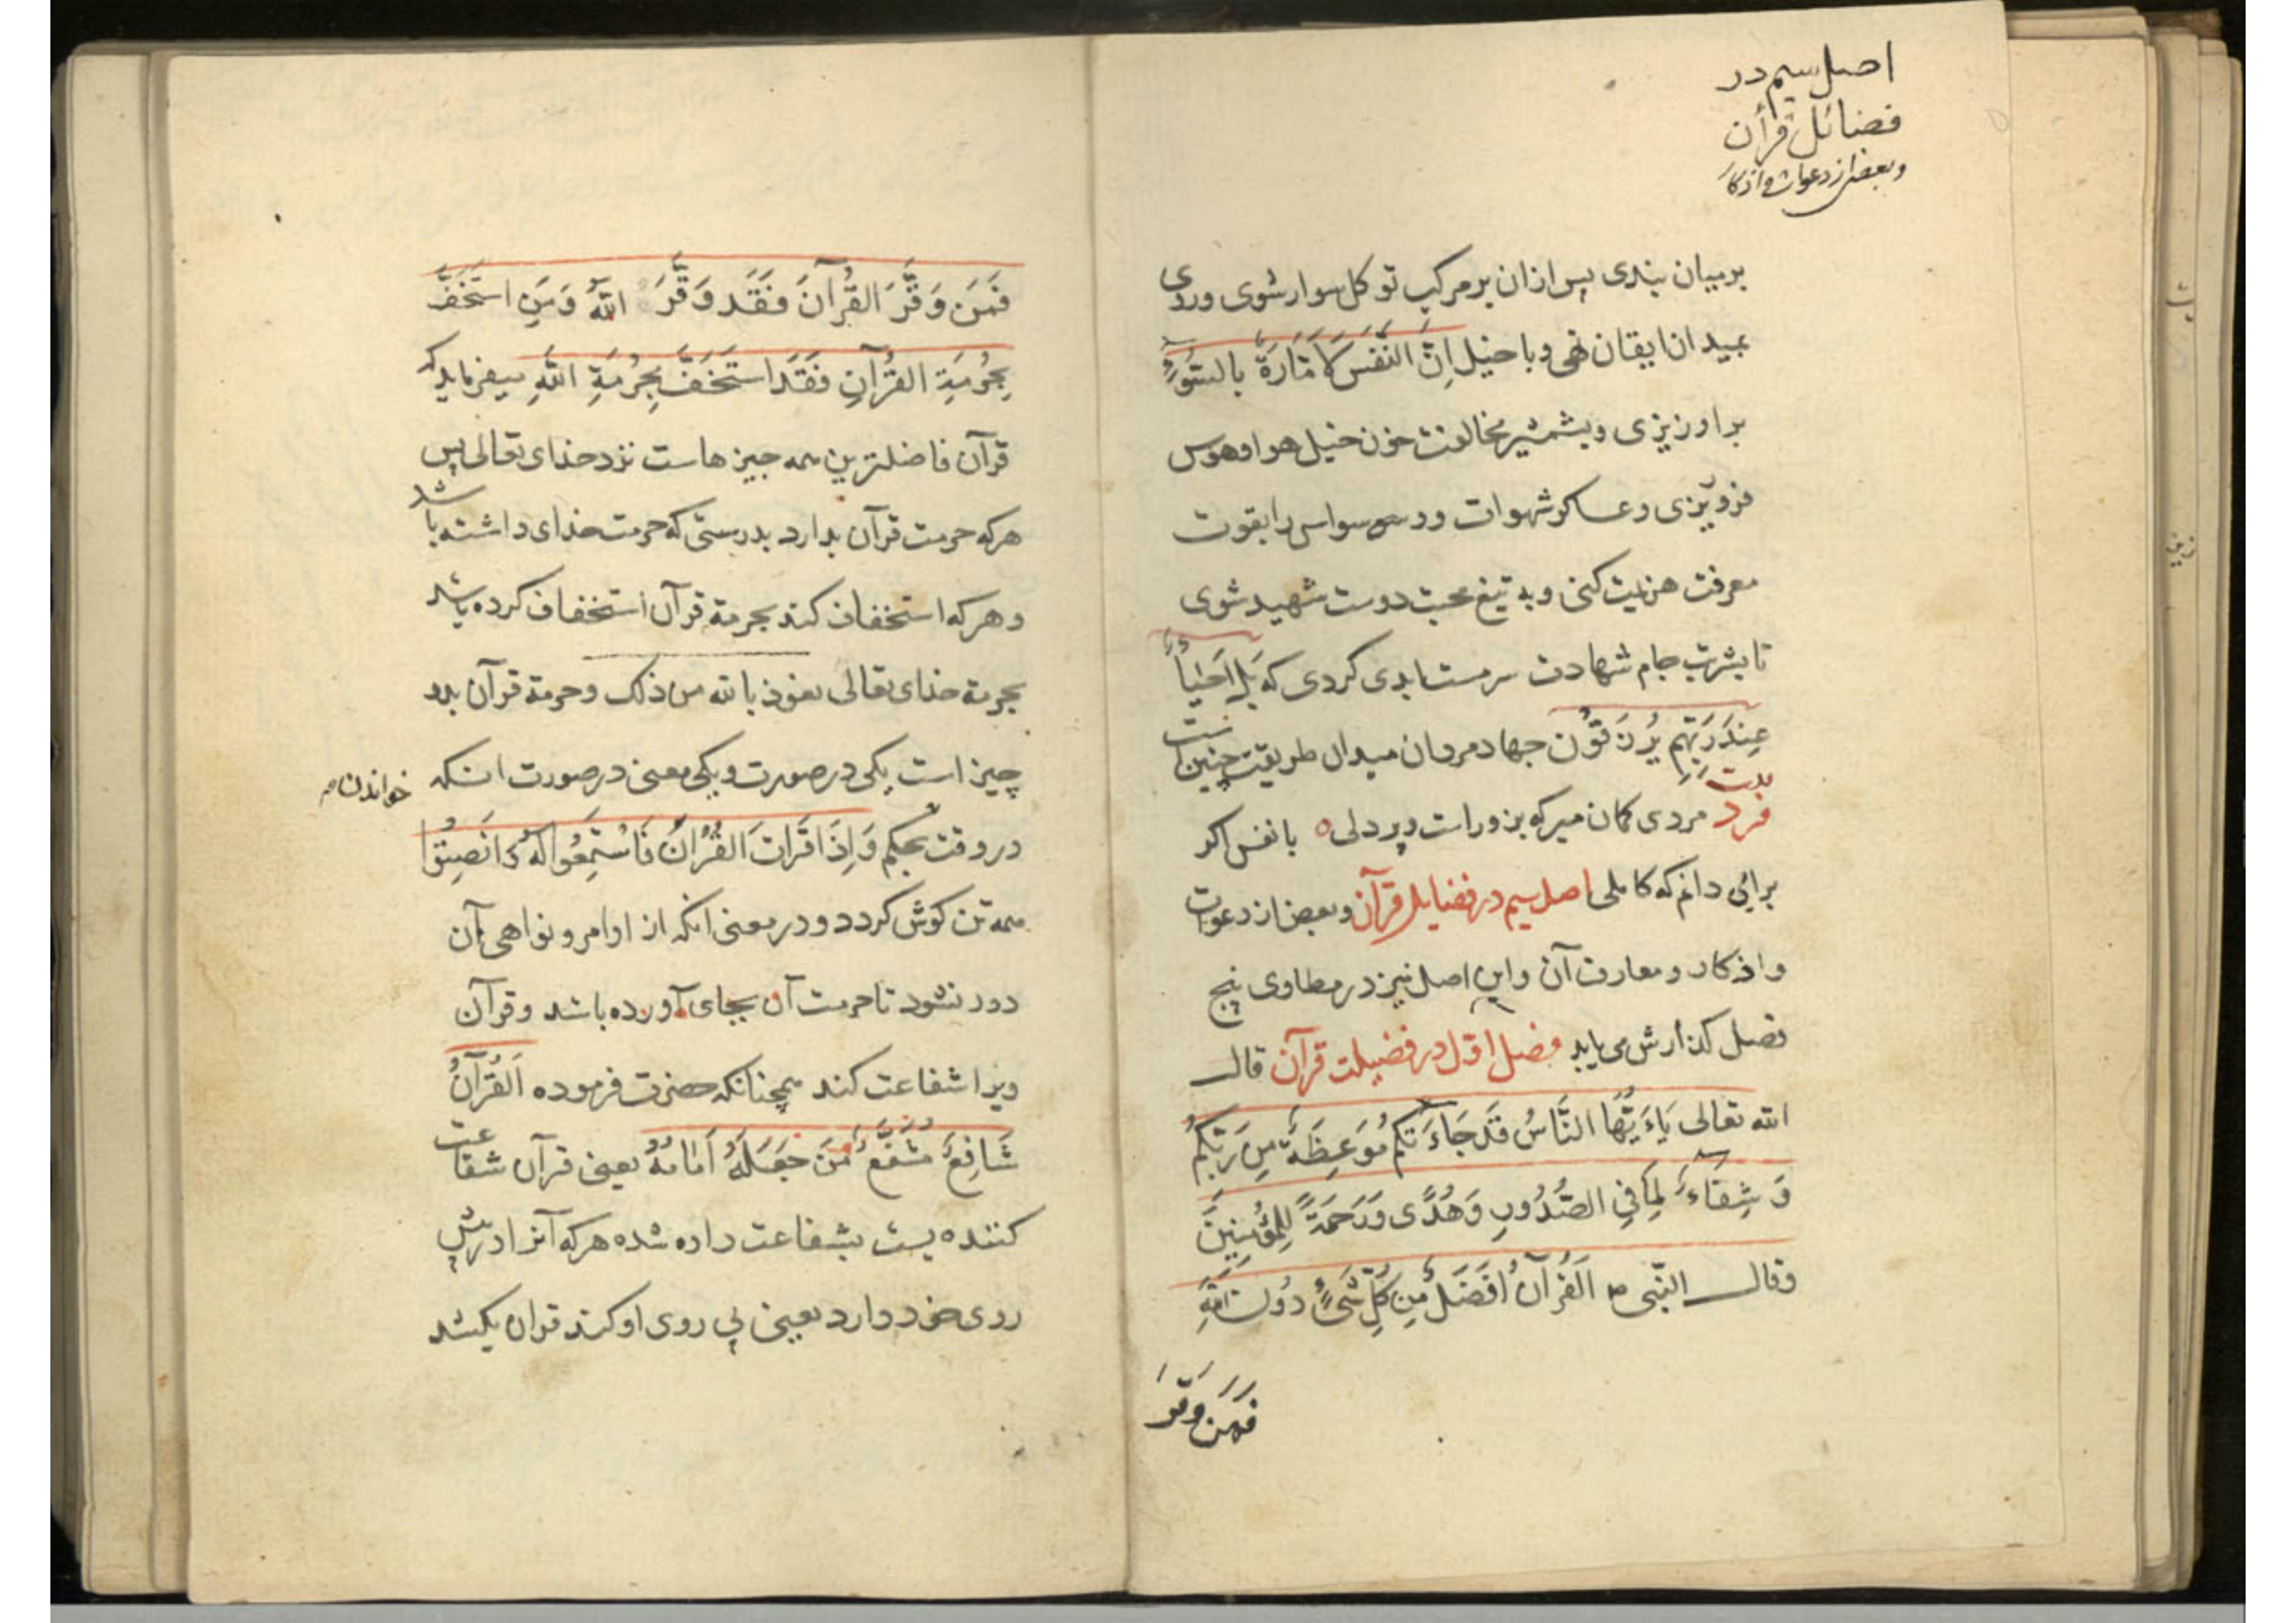 اصل سیم در
فضائل قرآن
وبعضی از دعوات و اذکار
برمیان بندی پس ازان بر مرکب توکل سوار شوی وروی
بمیدان ایقان نهی وبا خیل اِنَّ النَّفْسَ لَاَمَّارَةٌ بِالسُّوءِ
براویزی وبشمشیر مخالفت خون خیل هوا وهوس
فروریزی وعساکر شهوات و وسواس را بقوت
معرفت هزیمت کنی وبه تیغ محبت دوست شهید شوی
تا بشربت جام شهادت سرمست ابدی کردی که بَل اَحْیَاءٌ
عِندَ رَبِّهِم یُرزَقُون جهاد مردان میدان طریقت چنین است
بیت
فرد مردی کمان مبر که بزور است وپردلی ه با نفس اکر
برایی دانم که کاملی اصل سیم در فضایل قرآن وبعضی از دعوات
واذکار ومعارف آن واین اصل نیز در مطاوی پنج
فصل کذارش می یابد فصل اوّل در فضیلت قرآن قال
الله تعالی یَاءَیُّهَا النَّاسُ قَد جَاءَتکُم مَوعِظَةٌ مِن رَبِّکُم
وَشِفَاءٌ لِمَا فِی الصُّدُورِ وَهُدًی وَرَحمَةً لِلمُؤمِنِینَ
وقال النّبی ص اَلقُرآنُ اَفضَلُ مِن کُلِّ شَیءٍ دُونَ اللهِ
فَمَن وَقَّرَ
فَمَن وَقَّرَ القُرآنَ فَقَد وَقَّرَ اللهَ وَمَنِ استَخَفَّ
بِحُرمَةِ القُرآنِ فَقَدِ استَخَفَّ بِحُرمَةِ اللهِ میفرماید که
قرآن فاضلترین همه چیزهاست نزد خدای تعالی پس
هرکه حرمت قرآن بدارد بدرستی که حرمت خدای داشته باشد
وهرکه استخفاف کند بحرمة قرآن استخفاف کرده باشد
بحرمة خدای تعالی نعوذ بالله من ذلک وحرمة قرآن بدو
چیز است یکی در صورت ویکی معنی در صورت انکه
خواندن
در وقت بحکم وَاِذَا قَرَاتَ القُرْاٰنَ فَاسْتَمِعُوا لَهُ وَانصِتُوا
همه تن کوش کردد ودر معنی انکه از اوامر ونواهی آن
دور نشود تا حرمت آن بجای آورده باشد وقرآن
ویرا شفاعت کند همچنانکه حضرت فرموده اَلقُرآنُ
شَافِعٌ مُشَفَّعٌ مَن جَعَلَهُ اَمَامَهُ یعنی قرآن شفاعت
کننده یست بشفاعت داده شده هرکه آنرا در پیش
روی خود دارد یعنی پی روی او کند قران بکشد